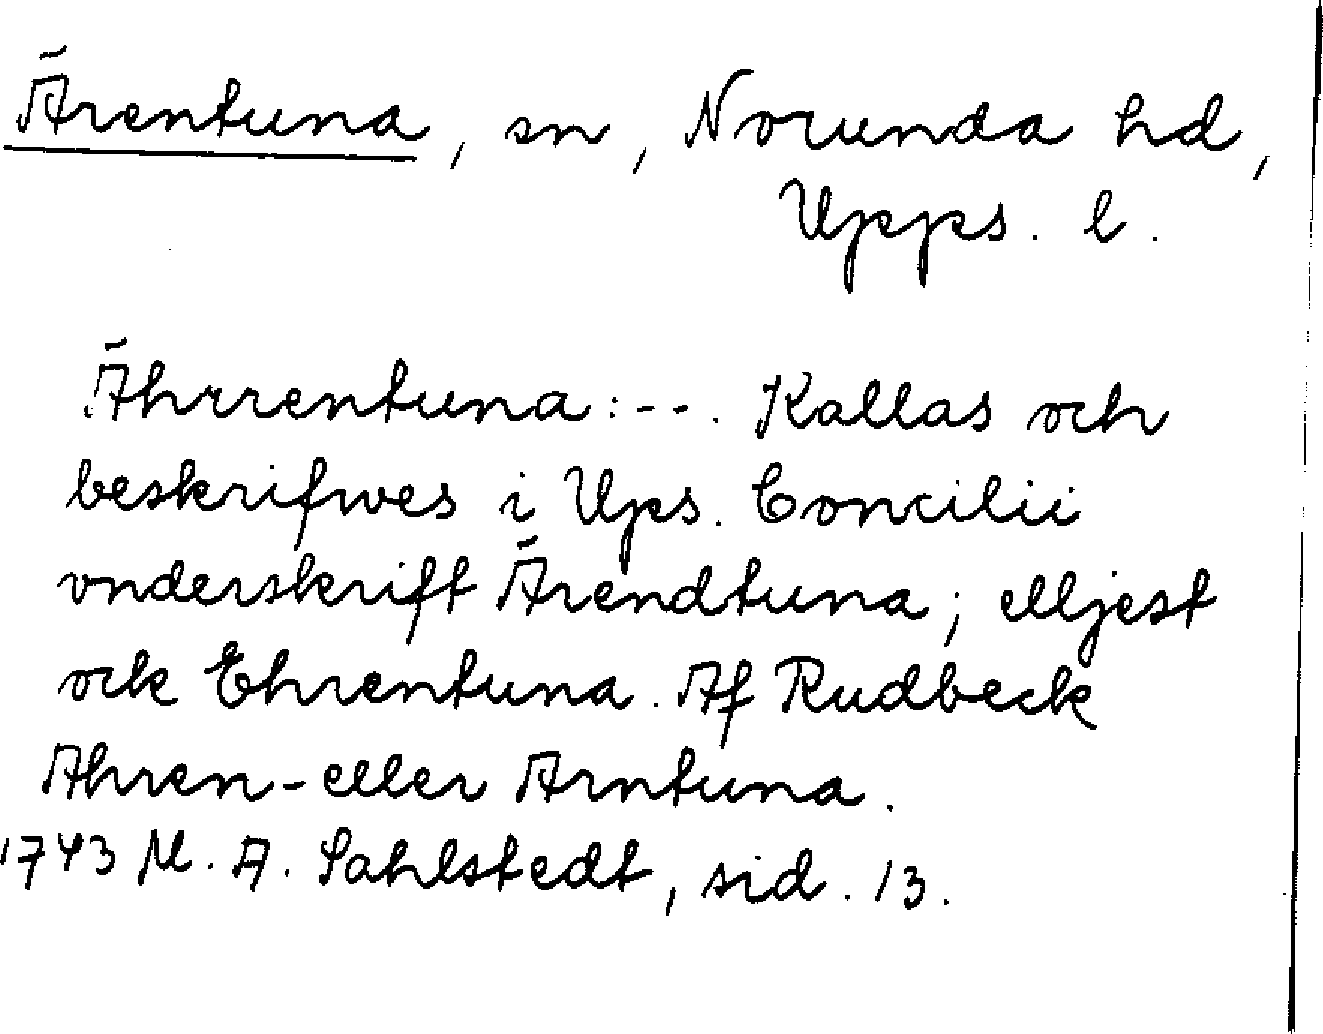 Ärentuna, sn, Norunda hd,
Upps. l.
Ährrentuna:--. Kallas och
beskrifwes i Ups. Concilii
vnderskrift Ärendtuna; elljest
ock Ehrentuna. Af Rudbeck
Ahren-eller Arntuna.
1743 M. A. Sahlstedt, sid. 13.